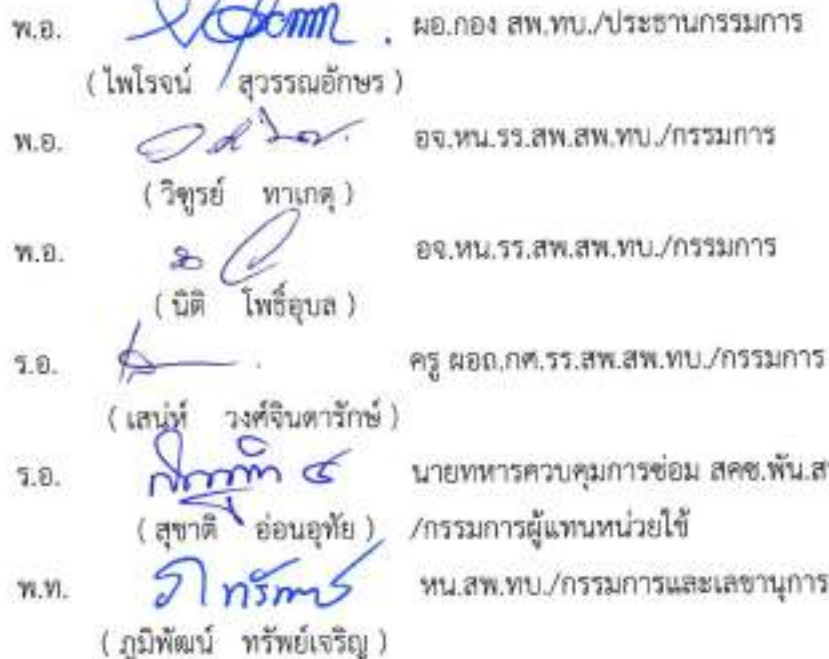 พ.อ. ผอ.กอง สพ.ทบ./ประธานกรรมการ
( ไพโรจน์ สุวรรณอักษร )
พ.อ. อจ.หน.รร.สพ.สพ.ทบ./กรรมการ
( วิฑูรย์ ทาเกตุ )
พ.อ. อจ.หน.รร.สพ.สพ.ทบ./กรรมการ
( นิติ โพธิ์อุบล )
ร.อ. ครู ผอถ.กศ.รร.สพ.สพ.ทบ./กรรมการ
( เสน่ห์ วงศ์จินดารักษ์ )
ร.อ. นายทหารควบคุมการซ่อม สคซ.พัน.ส
( สุชาติ อ่อนอุทัย ) /กรรมการผู้แทนหน่วยใช้
พ.ท. หน.สพ.ทบ./กรรมการและเลขานุการ
( ภูมิพัฒน์ ทรัพย์เจริญ )